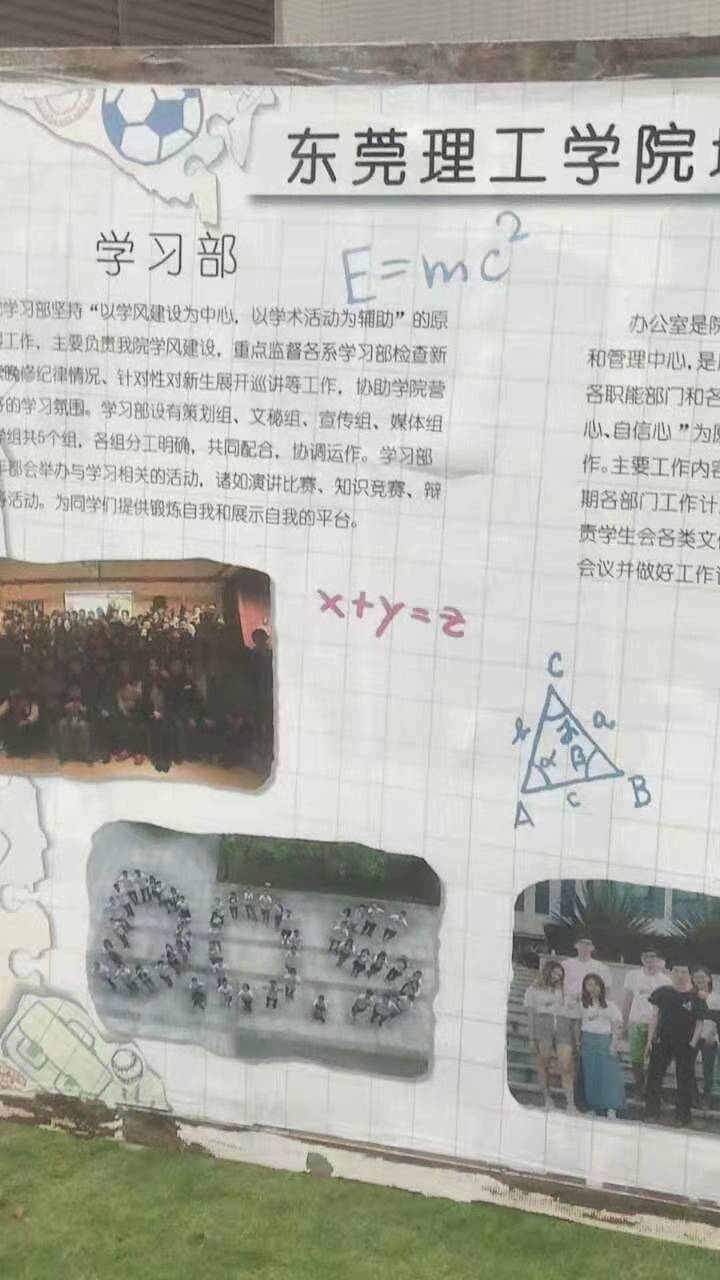 东莞理工学院
学习部
E=mc²
学习部坚持“以学风建设为中心，以学术活动为辅助”的原
工作，主要负责我院学风建设，重点监督各系学习部检查新
晚修纪律情况、针对性对新生展开巡讲等工作，协助学院营
的学习氛围。学习部设有策划组、文秘组、宣传组、媒体组
组共5个组，各组分工明确，共同配合，协调运作。学习部
都会举办与学习相关的活动，诸如演讲比赛、知识竞赛、辩
活动。为同学们提供锻炼自我和展示自我的平台。
办公室是院
和管理中心，是
各职能部门和各
心、自信心”为
作。主要工作内容
期各部门工作计
责学生会各类文
会议并做好工作
x+y=z
C
b γ a
α β
A c B